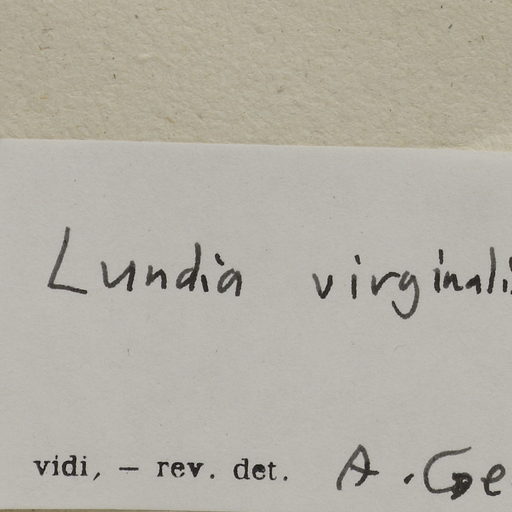 Lundia virginalis
vidi, — rev. det. A. Ge